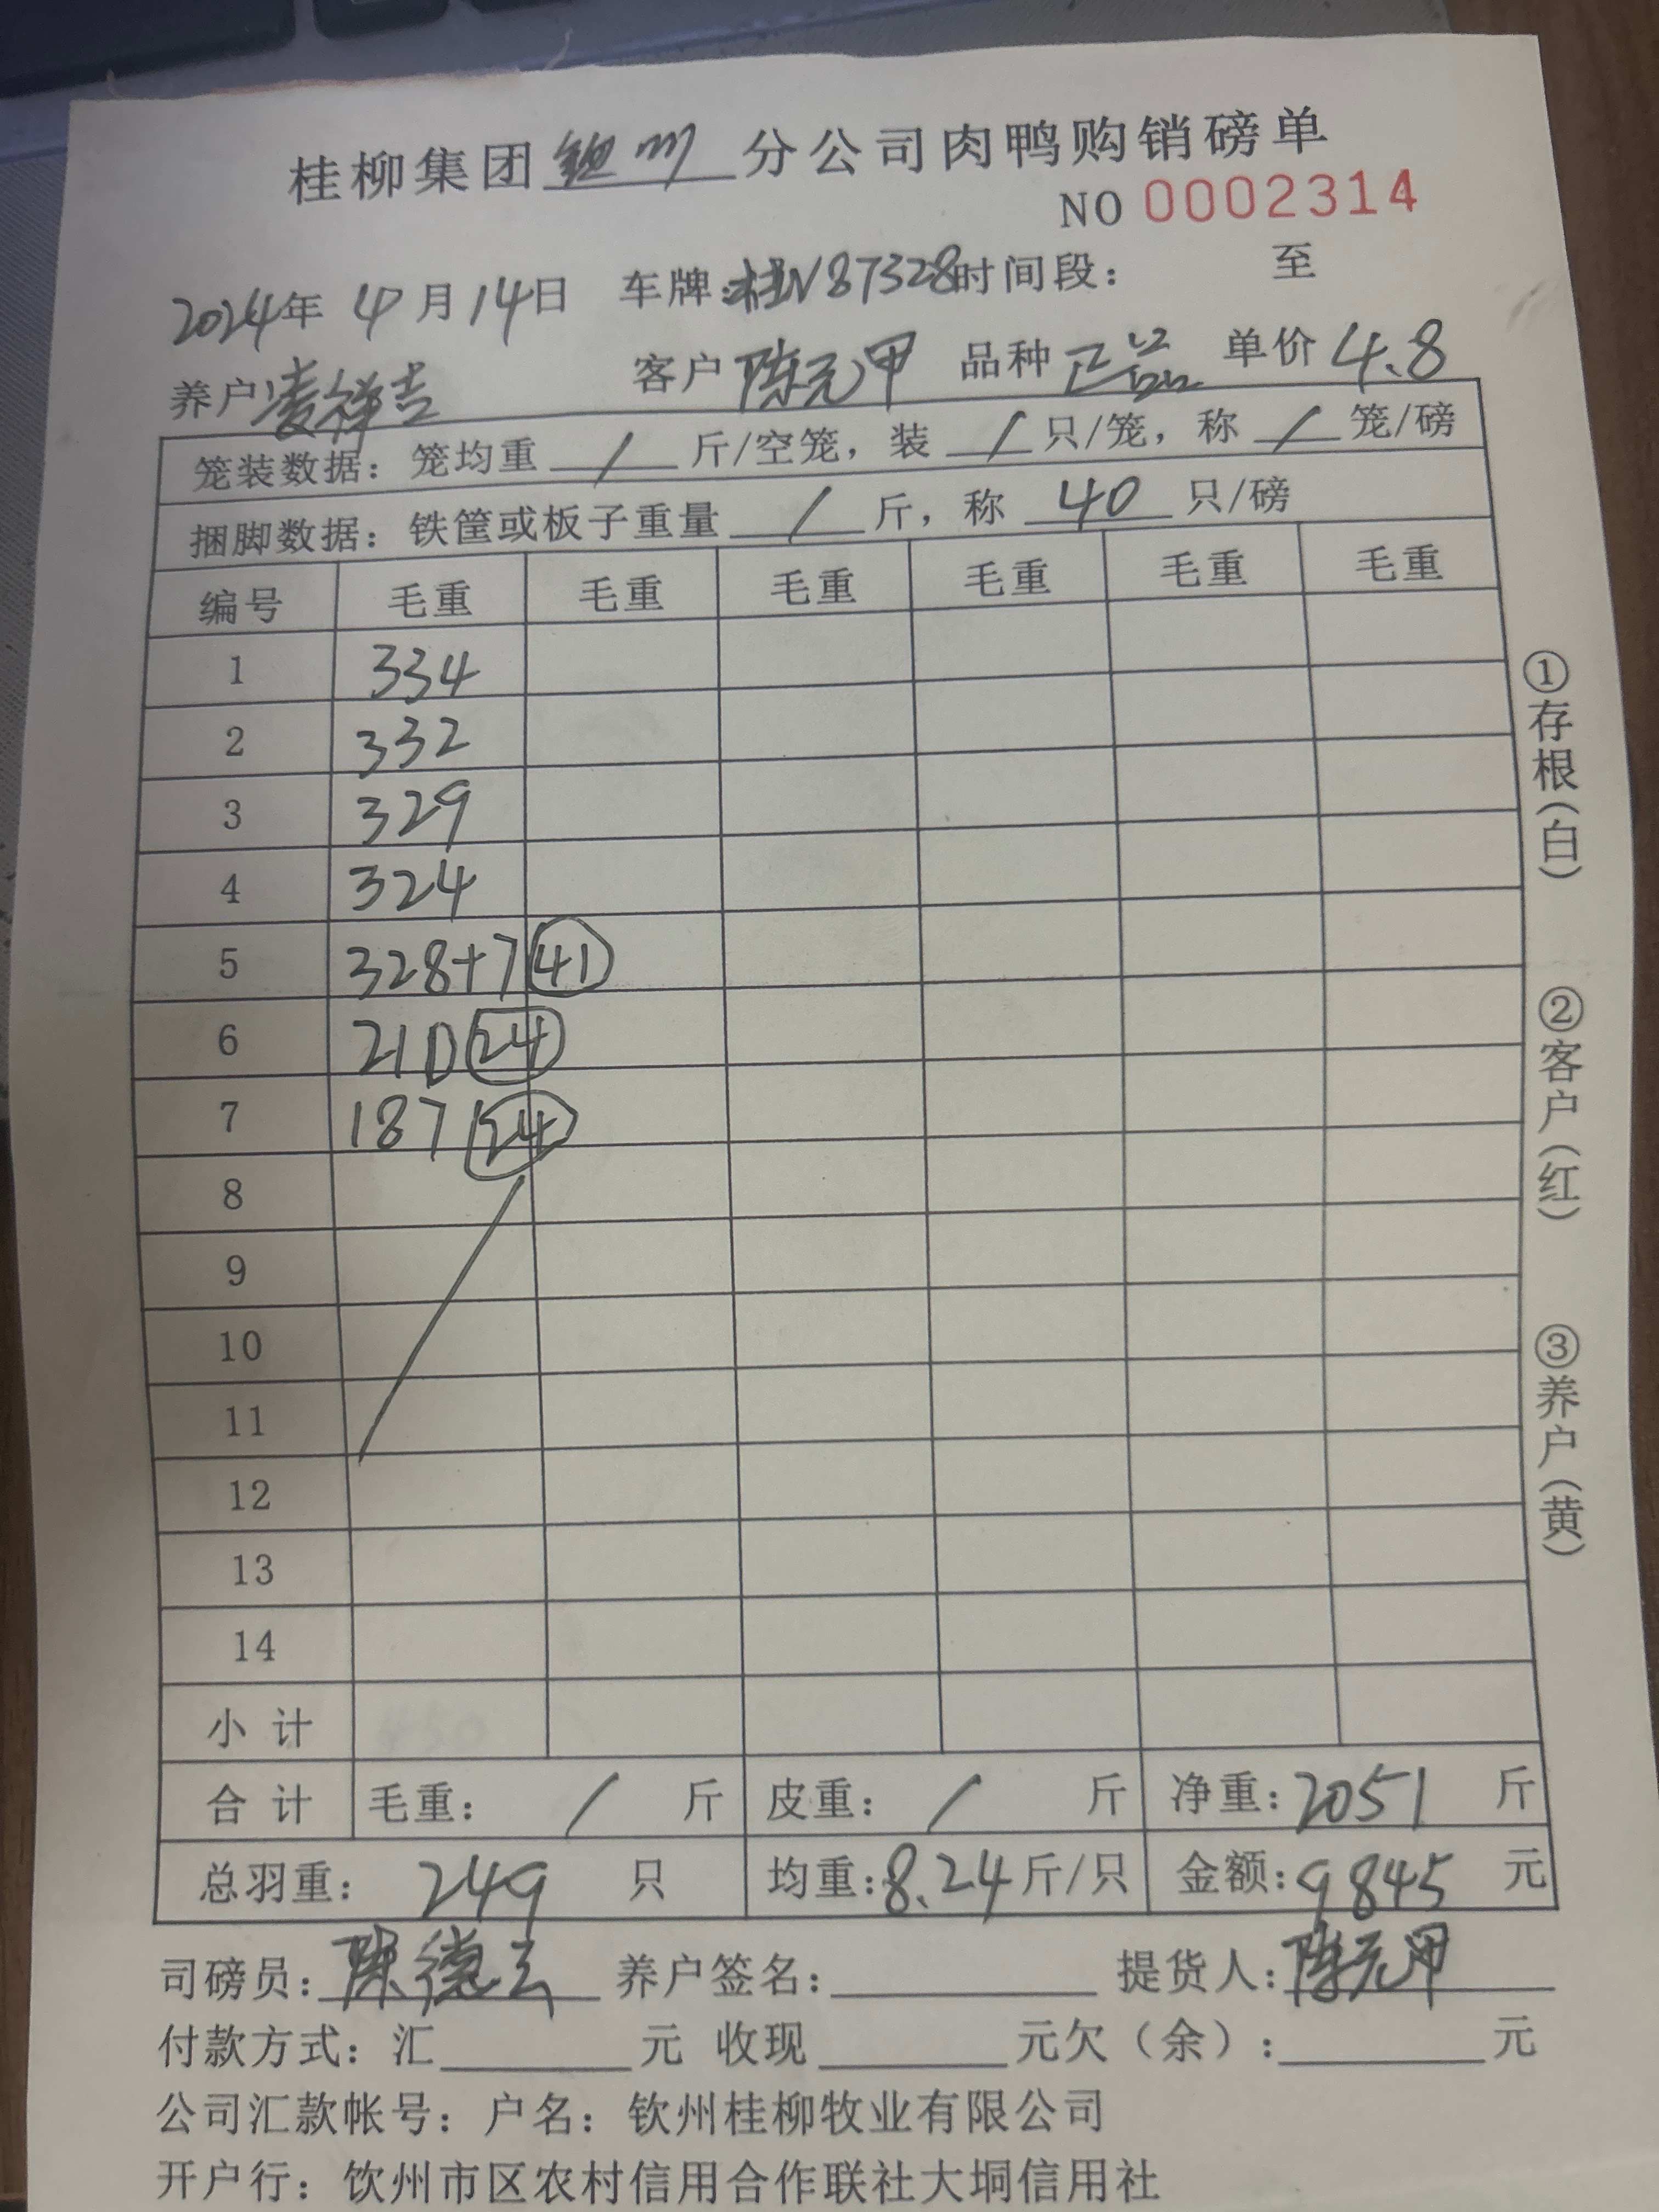 桂柳集团钦州分公司肉鸭购销磅单
NO 0002314
2024年 4月14日 车牌:桂N87328时间段: 至
养户凌祥吉 客户陈元甲 品种正品 单价4.8
笼装数据: 笼均重 / 斤/空笼, 装 / 只/笼, 称 / 笼/磅
捆脚数据: 铁筐或板子重量 / 斤, 称 40 只/磅
编号 毛重 毛重 毛重 毛重 毛重 毛重
1 334
2 332
3 329
4 324
5 328+7 41
6 210 24
7 187 24
8
9
10
11
12
13
14
小计
合计 毛重: / 斤 皮重: / 斤 净重: 2051 斤
总羽重: 249 只 均重:8.24斤/只 金额:9845 元
司磅员:陈德云 养户签名: 提货人:陈元甲
付款方式: 汇 元 收现 元欠(余): 元
公司汇款帐号: 户名: 钦州桂柳牧业有限公司
开户行: 钦州市区农村信用合作联社大垌信用社
①存根(白)
②客户(红)
③养户(黄)